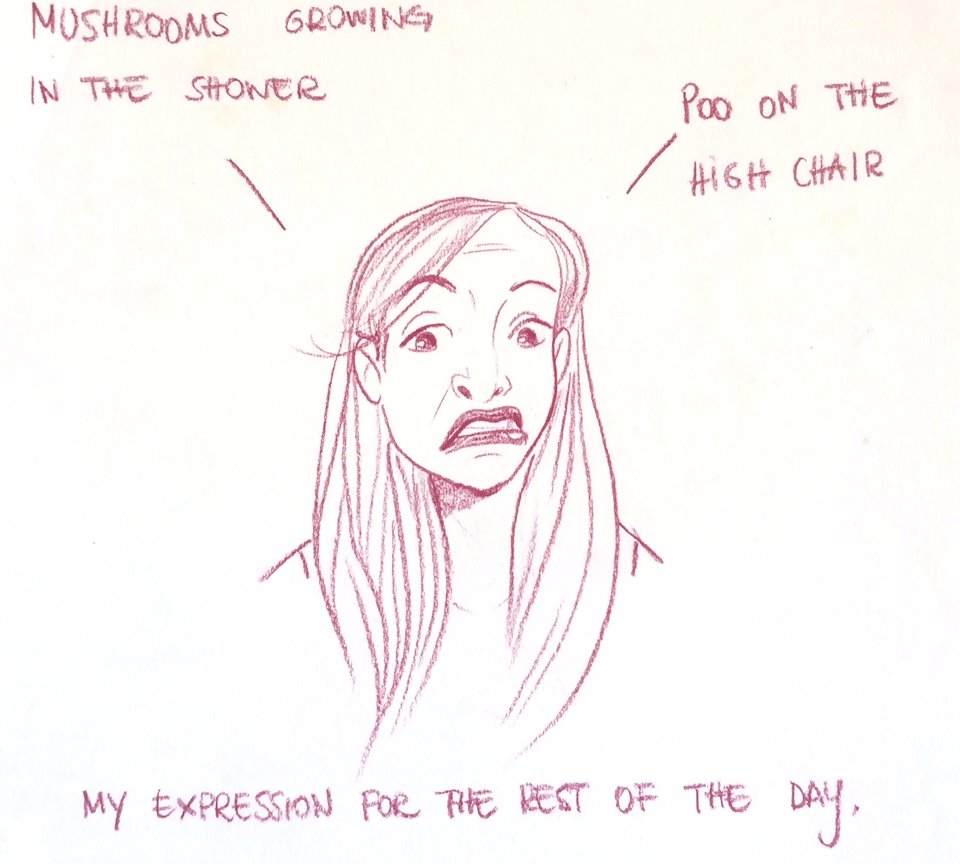 MUSHROOMS GROWING
IN THE SHOWER
POO ON THE
HIGH CHAIR
MY EXPRESSION FOR THE REST OF THE DAY.